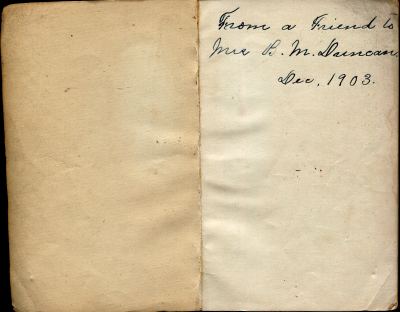 From a Friend to
Mrs R. M. Duncan.
Dec, 1903.